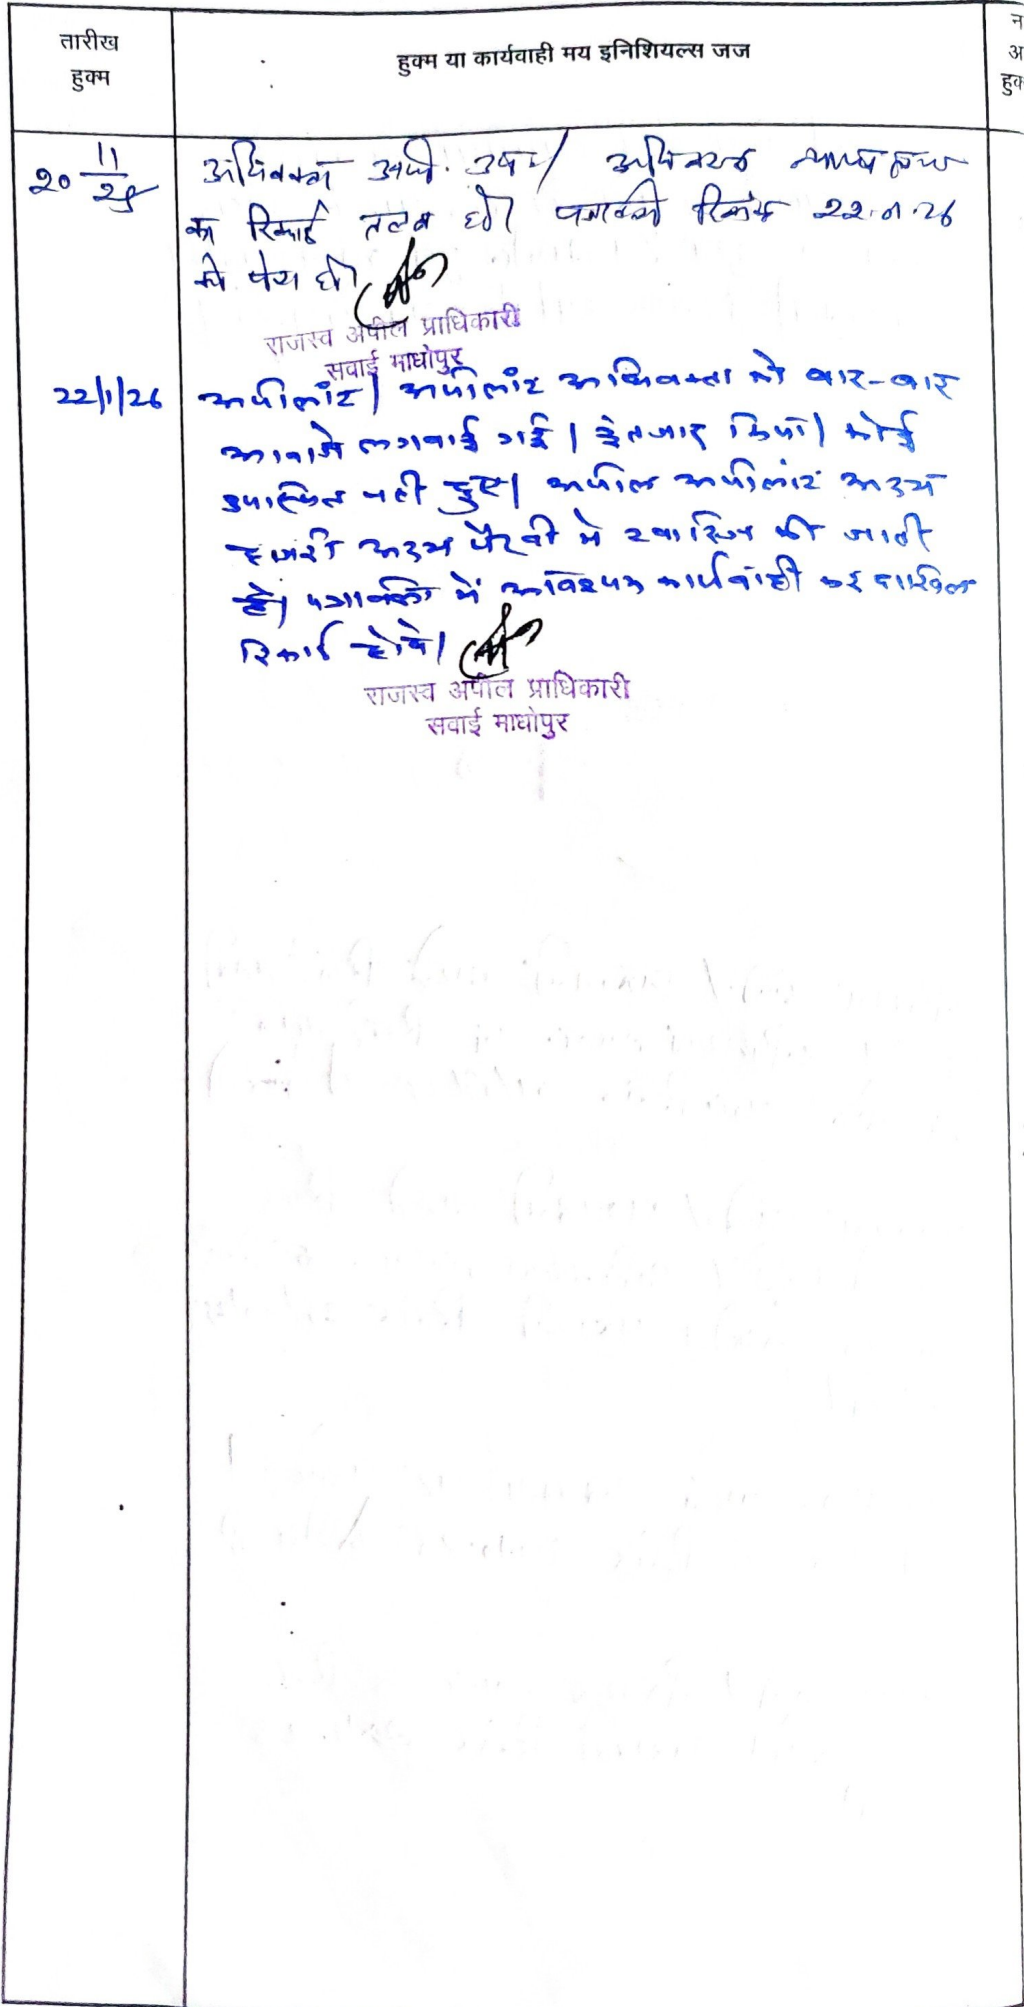 तारीख
हुक्म
हुक्म या कार्यवाही मय इनिशियल्स जज
न
अ
हुक
20 11/25 अधिवक्ता अपी. उप. / अधिनस्थ न्यायालय
का रिकार्ड तलब हो। पत्रावली दिनांक 22.01.26
को पेश हो।
राजस्व अपील प्राधिकारी
सवाई माधोपुर
22/1/26 अपीलांट / अपीलांट अधिवक्ता को बार-बार
आवाजे लगवाई गई। इंतजार किया। कोई
उपस्थित नही हुए। अपील अपीलांट अदम
हाजरी अदम पैरवी मे खारिज की जाती
है। पत्रावली में आवश्यक कार्यवाही कर दाखिल
रिकार्ड होवे।
राजस्व अपील प्राधिकारी
सवाई माधोपुर